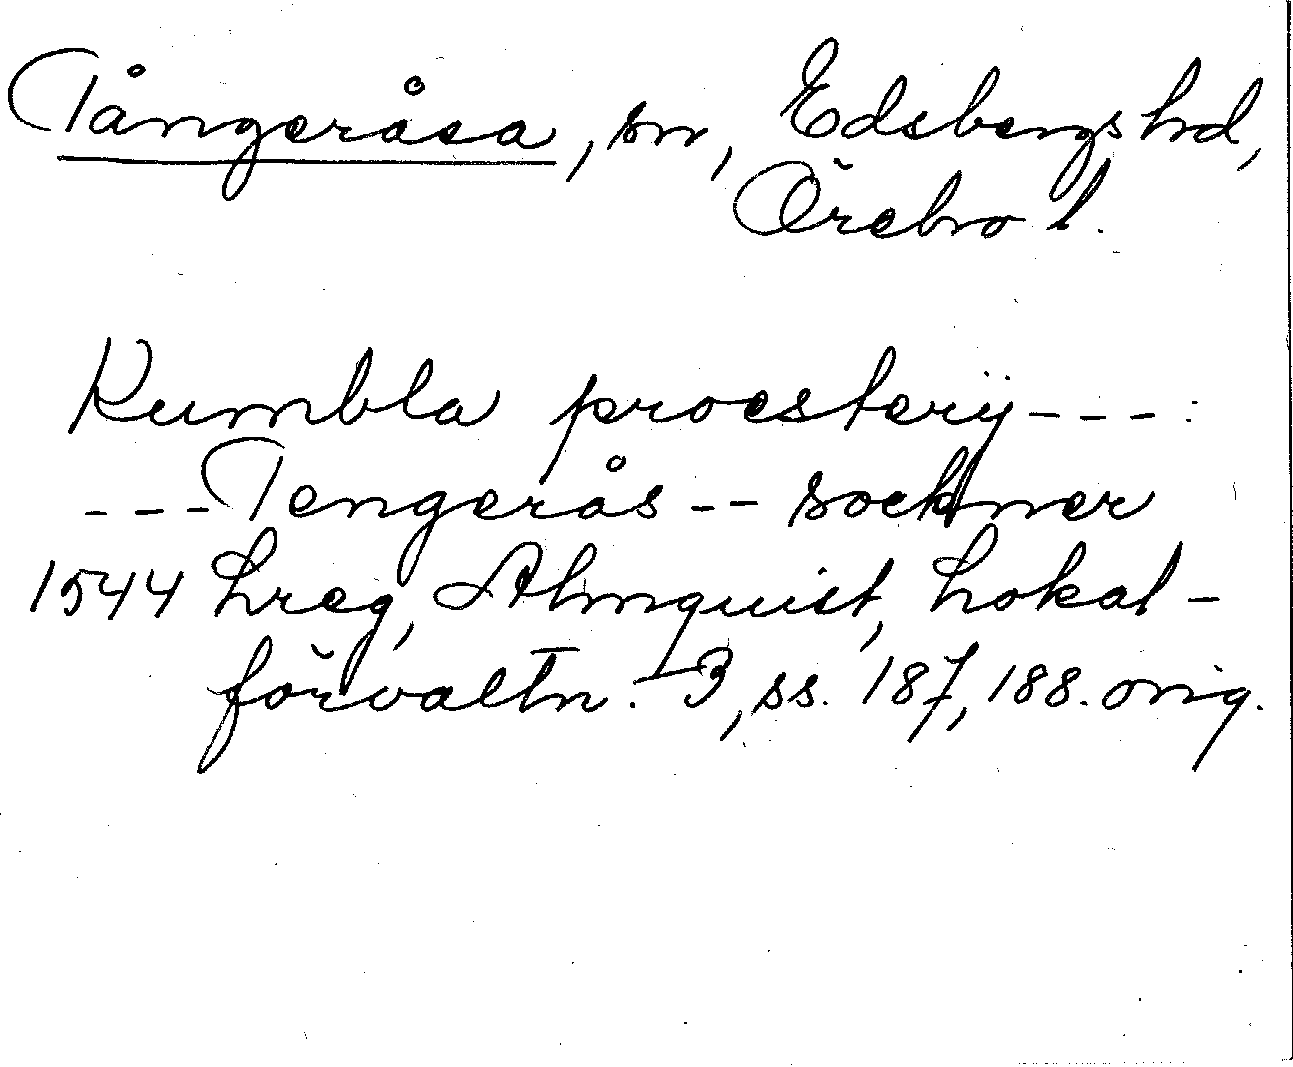 Tångeråsa, sn, Edsbergs hd,
Örebro l.
Kumbla proesterij - - - :
- - - Tengerås - - sockner
1544 Lreg, Almquist, Lokal-
förvaltn. 3, ss. 187, 188. orig.